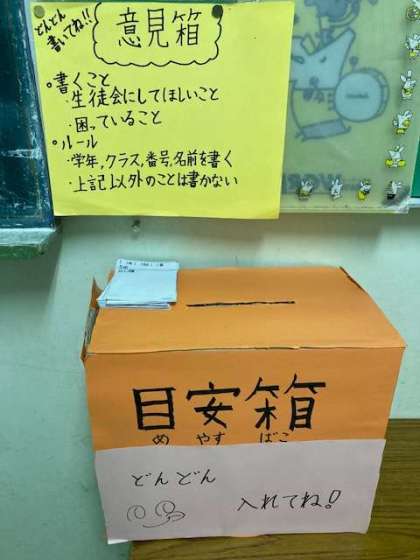 どんどん
書いてね!!
意見箱
○書くこと
・生徒会にしてほしいこと
・困っていること
○ルール
・学年,クラス,番号,名前を書く
・上記以外のことは書かない
目安箱
め やす ばこ
どんどん
入れてね!